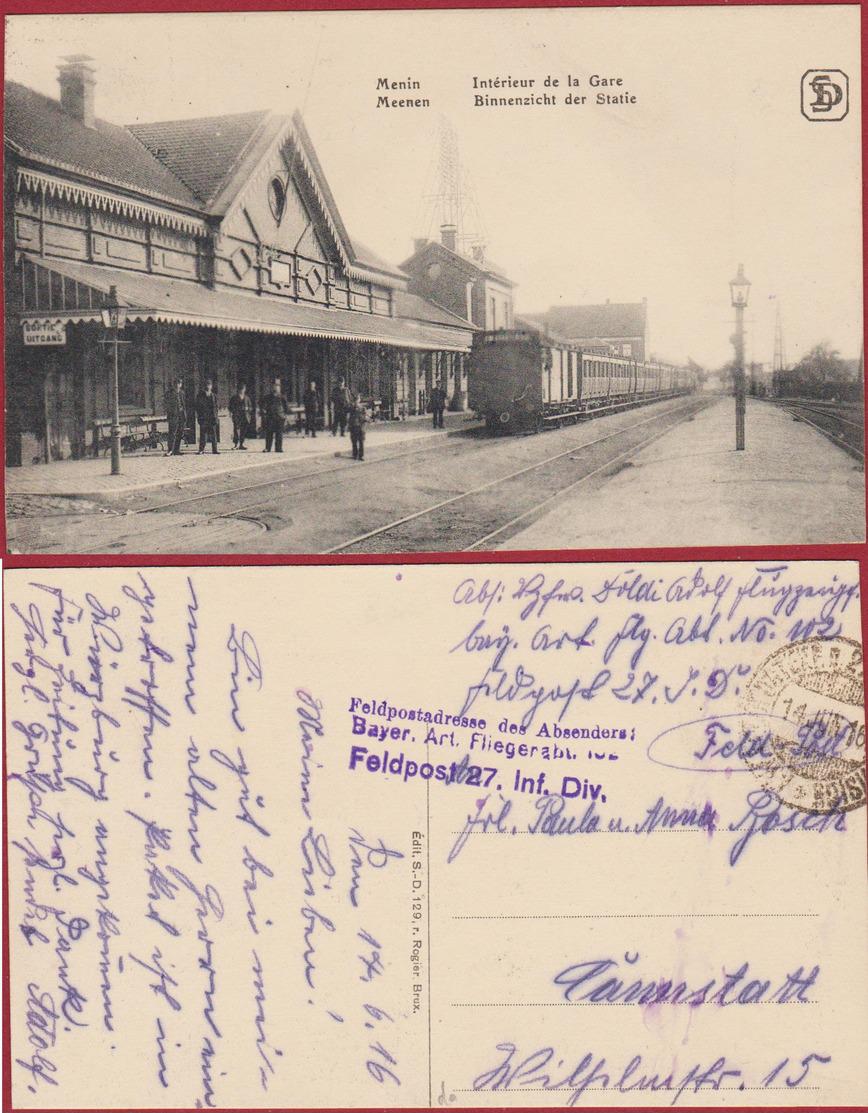 Menin Intérieur de la Gare
Meenen Binnenzicht der Statie
SD
SORTIE
UITGANG
Abs: Vzfw. Döldi Adolf Flugzeugf.
bay. Art. Flg. Abt. No. 102
Feldpost 27. I. D.
Feldpostadresse des Absenders:
Bayer. Art. Fliegerabt. 102
Feldpost 27. Inf. Div.
14 JUN 16
Feld
Frl. Paula u. Anna Bosch
Cannstatt
Wilhelmstr. 15
Édit. S.-D. 129, r. Rogier. Brux.
Den 14. 6. 16
Meine Lieben!
Bin gut bei mei-
nem alten Herrn ein-
getroffen. Paket ist in
Würzburg angekommen.
Für Zeitung herzl. Dank.
Herzl. Grüße Adolf.